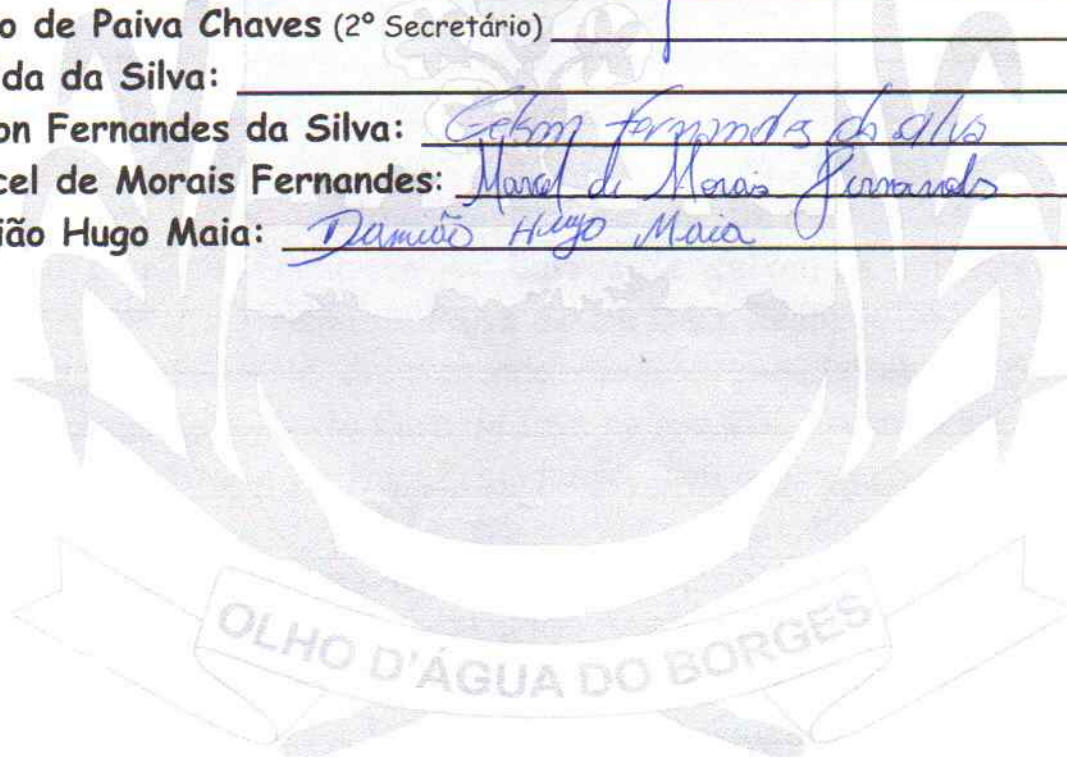 o de Paiva Chaves (2º Secretário)
da da Silva:
on Fernandes da Silva: Gelson Fernandes da Silva
cel de Morais Fernandes: Marcel de Morais Fernandes
ião Hugo Maia: Damião Hugo Maia
OLHO D'ÁGUA DO BORGES